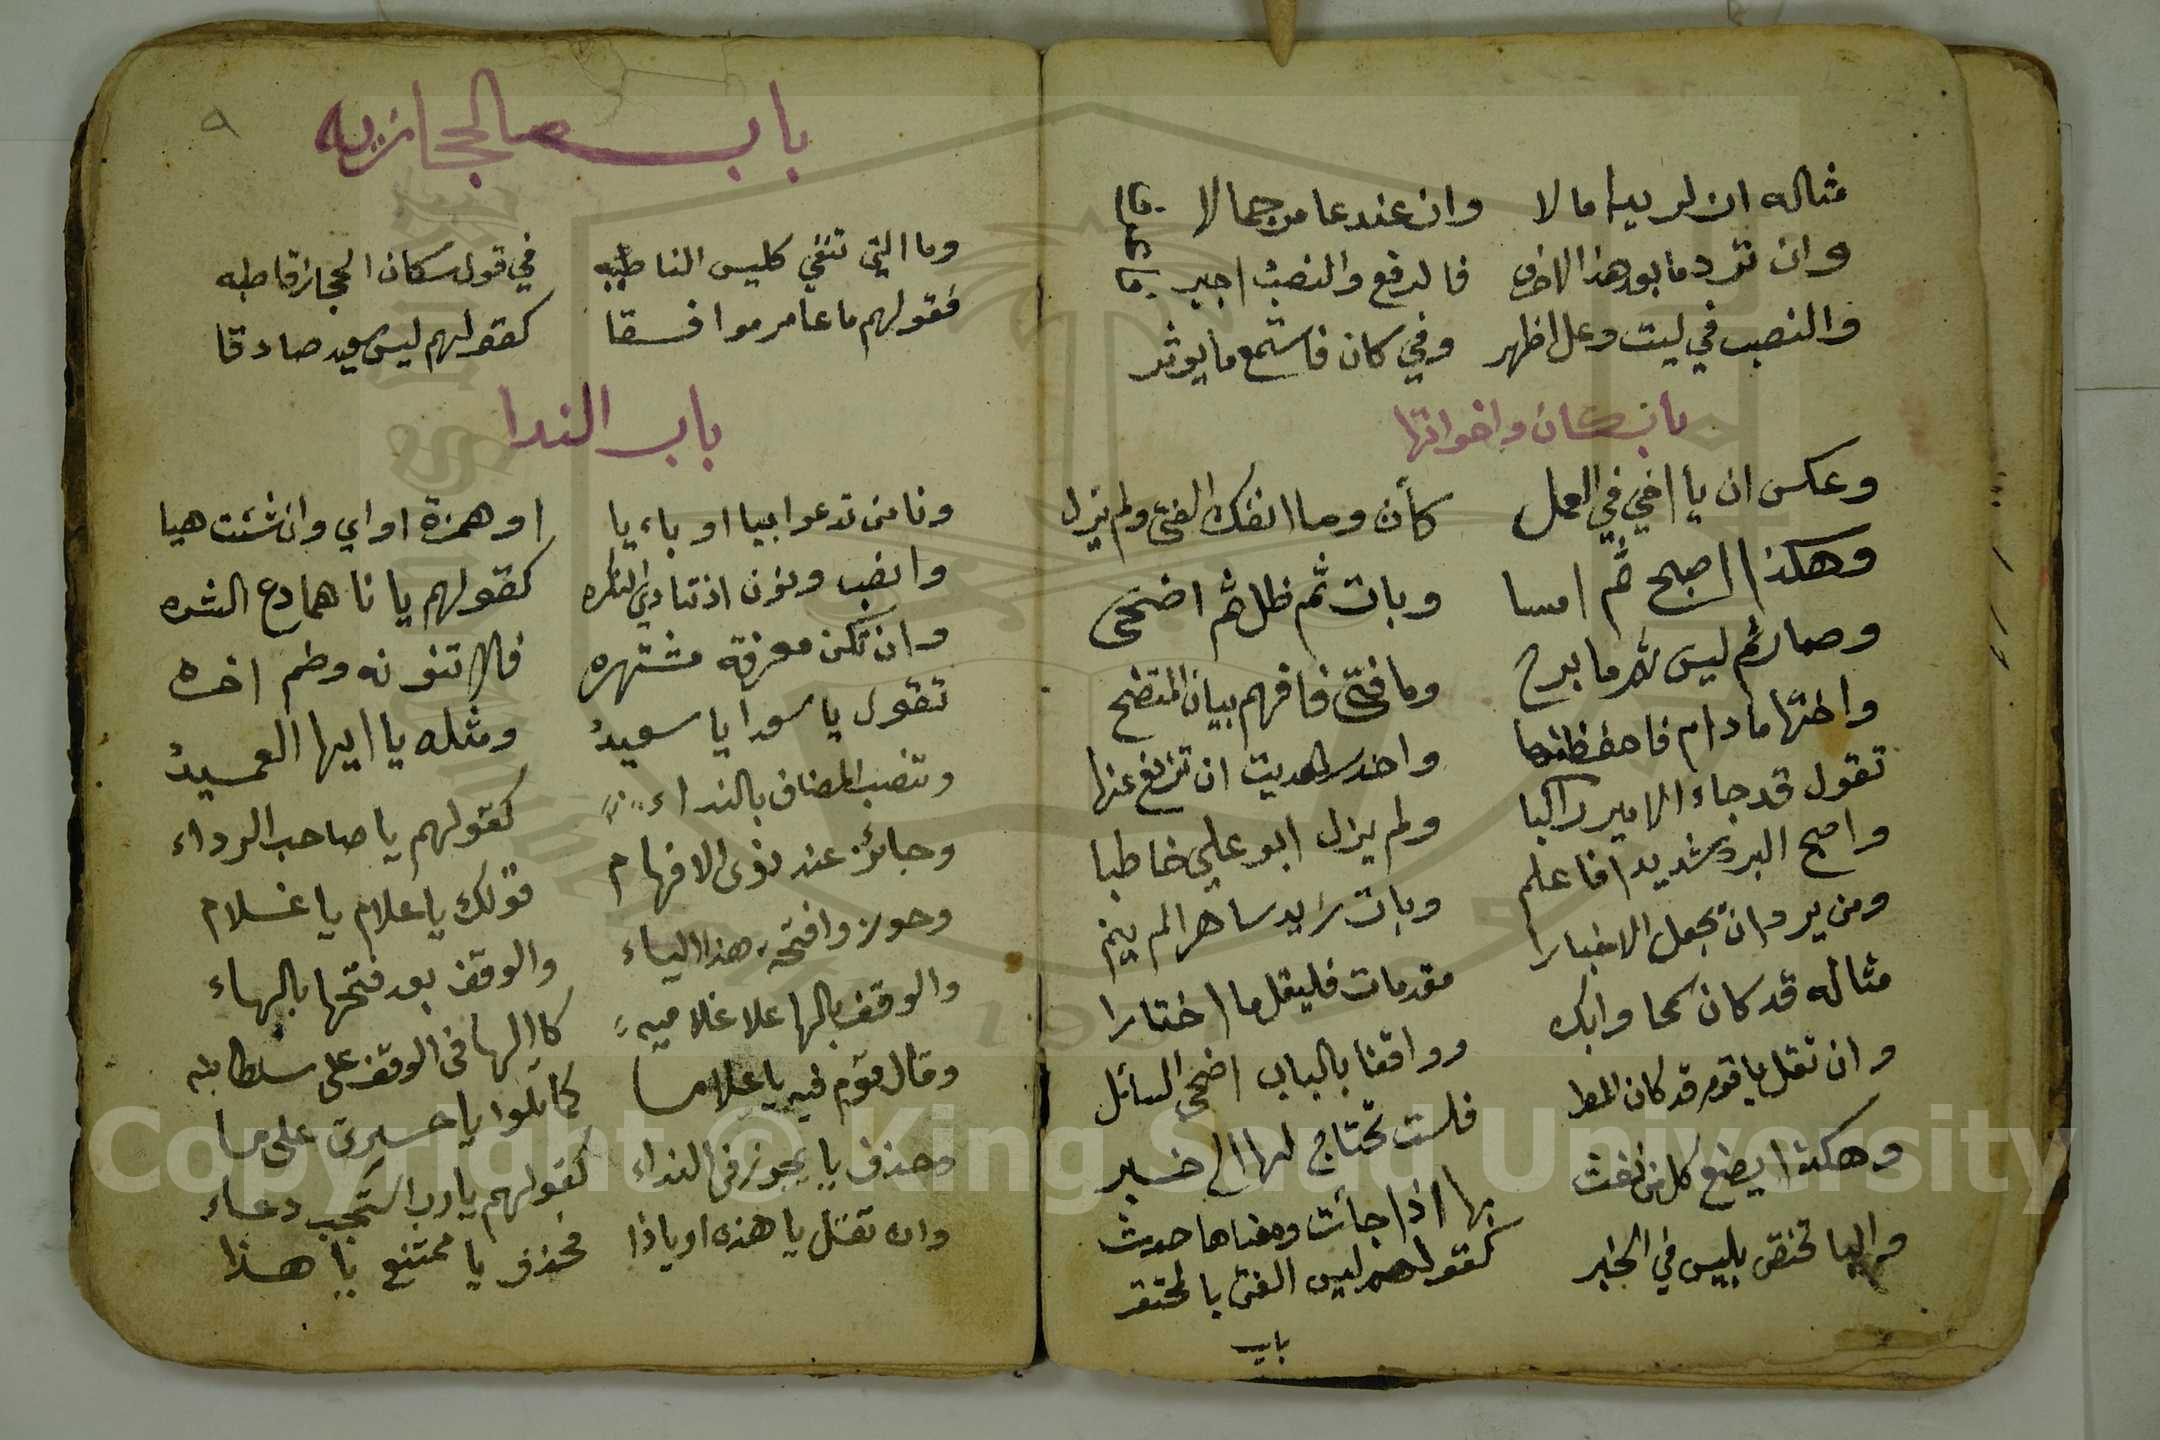 مثاله ان لزيد مالا وان عند عامر جمالا
وان تزد ما بعد هذا الاحرف فالرفع والنصب اجيز
والنصب في ليت وعل اظهر وفي كان فاستمع ما يوثر
باب كان واخواتها
وعكس ان يا اخي في العمل كأن وما انفك الفتى ولم يزل
وهكذا اصبح ثم امسا وبات ثم ظل ثم اضحى
وصار ثم ليس ثم ما برح وما فتئ فافهم بيان المتضح
واختها ما دام فاحفظنها واحذر هديت ان تزيغ عنها
تقول قد جاء الامير راكبا ولم يزل ابو علي خاطبا
واصبح البرد شديدا فاعلم وبات زيد ساهرا لم ينم
ومن يرد ان يجعل الاخبارا مقدمات فليقل ما اختارا
مثاله قد كان سمحا وابل وواقفا بالباب اضحى السائل
وان تقل يا قوم قد كان المطر فلست تحتاج لها الى خبر
وهكذا يصنع كل من نفث بها اذا جائت ومعناها حدث
والبا تختص بليس في الخبر كقولهم ليس الفتى بالمحتقر
باب
٩
باب ما الحجازيه
وما التي تنفي كليس الناصبه في قول سكان الحجاز قاطبه
فقولهم ما عامر موافقا كقولهم ليس سعيد صادقا
باب الندا
وناد من تدعوا بيا او باء يا او همزة او اي وان شئت هيا
وانصب ونون اذ تنادي النكره كقولهم يا نا هما دع الشره
وان تكن معرفة مشتهره فلا تنونه وضم اخره
تقول يا سعد ايا سعيد ومثله يا ايها العميد
وتنصب المضاف بالنداء كقولهم يا صاحب الرداء
وجائز عند ذوى الافهام قولك يا غلام يا غلام
وجوزوا فتحة هذا الياء والوقف بعد فتحها بالهاء
والوقف بالها علا غلاميه كالها في الوقف على سلطانيه
وقال قوم فيه يا غلاما كما تلوا يا حسرتى على ما
وحذف يا يجوز في النداء كقولهم رب استجب دعاء
وان تقل يا هذه او يا ذا فحذف يا ممتنع يا هذا